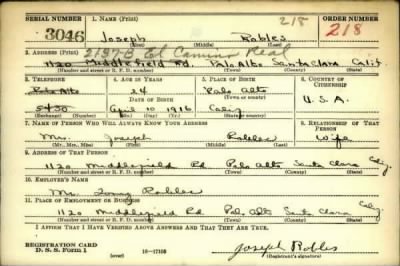 SERIAL NUMBER 1. NAME (Print) 218 ORDER NUMBER
3046 Joseph Robles 218
(First) (Middle) (Last)
2137-B El Camino Real
2. ADDRESS (Print)
1120 Middlefield Rd. Palo Alto Santa Clara Calif.
(Number and street or R. F. D. number) (Town) (County) (State)
3. TELEPHONE 4. AGE IN YEARS 5. PLACE OF BIRTH 6. COUNTRY OF CITIZENSHIP
Palo Alto 24 Palo Alto
DATE OF BIRTH (Town or county)
5430 April 10 1916 Calif U.S.A.
(Exchange) (Number) (Mo.) (Day) (Yr.) (State or country)
7. NAME OF PERSON WHO WILL ALWAYS KNOW YOUR ADDRESS 8. RELATIONSHIP OF THAT PERSON
Mrs. Joseph Robles Wife
(Mr., Mrs., Miss) (First) (Middle) (Last)
9. ADDRESS OF THAT PERSON
1120 Middlefield Rd Palo Alto Santa Clara Calif
(Number and street or R. F. D. number) (Town) (County) (State)
10. EMPLOYER'S NAME
Mr. Robles
11. PLACE OF EMPLOYMENT OR BUSINESS
1120 Middlefield Rd Palo Alto Santa Clara Calif
(Number and street or R. F. D. number) (Town) (County) (State)
I AFFIRM THAT I HAVE VERIFIED ABOVE ANSWERS AND THAT THEY ARE TRUE.
REGISTRATION CARD
D. S. S. Form 1 (over) 16-17105 Joseph Robles
(Registrant's signature)